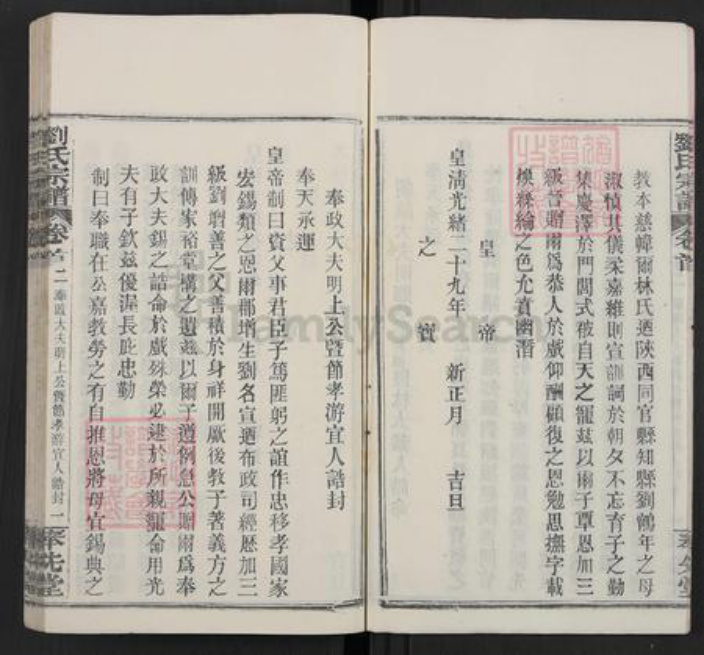 劉氏宗譜 卷首
教本慈幃爾林氏迺陝西同官縣知縣劉鶴年之母
淑慎其儀柔嘉維則宣訓詞於朝夕不忘育子之勤
集慶澤於門閭式被自天之寵茲以爾子覃恩加三
級晉贈爾爲恭人於戲仰酬顧復之恩勉思撫字載
煥絲綸之色允賁幽潛
皇清光緒二十九年 新正月 吉旦
皇帝
之寶
奉政大夫明上公暨節孝游宜人誥封
奉天承運
皇帝制曰資父事君臣子篤匪躬之誼作忠移孝國家
宏錫類之恩爾郡增生劉名宣迺布政司經歷加三
級劉增善之父善積於身祥開厥後教子著義方之
訓傳家裕堂構之遺茲以爾子遵例急公贈爾爲奉
政大夫錫之誥命於戲殊榮必逮於所親寵命用光
夫有子欽茲優渥長庇忠勤
制曰奉職在公嘉教勞之有自推恩將母宜錫典之
劉氏宗譜 卷首 二 奉政大夫明上公暨節孝游宜人誥封 一 奉先堂
FamilySearch